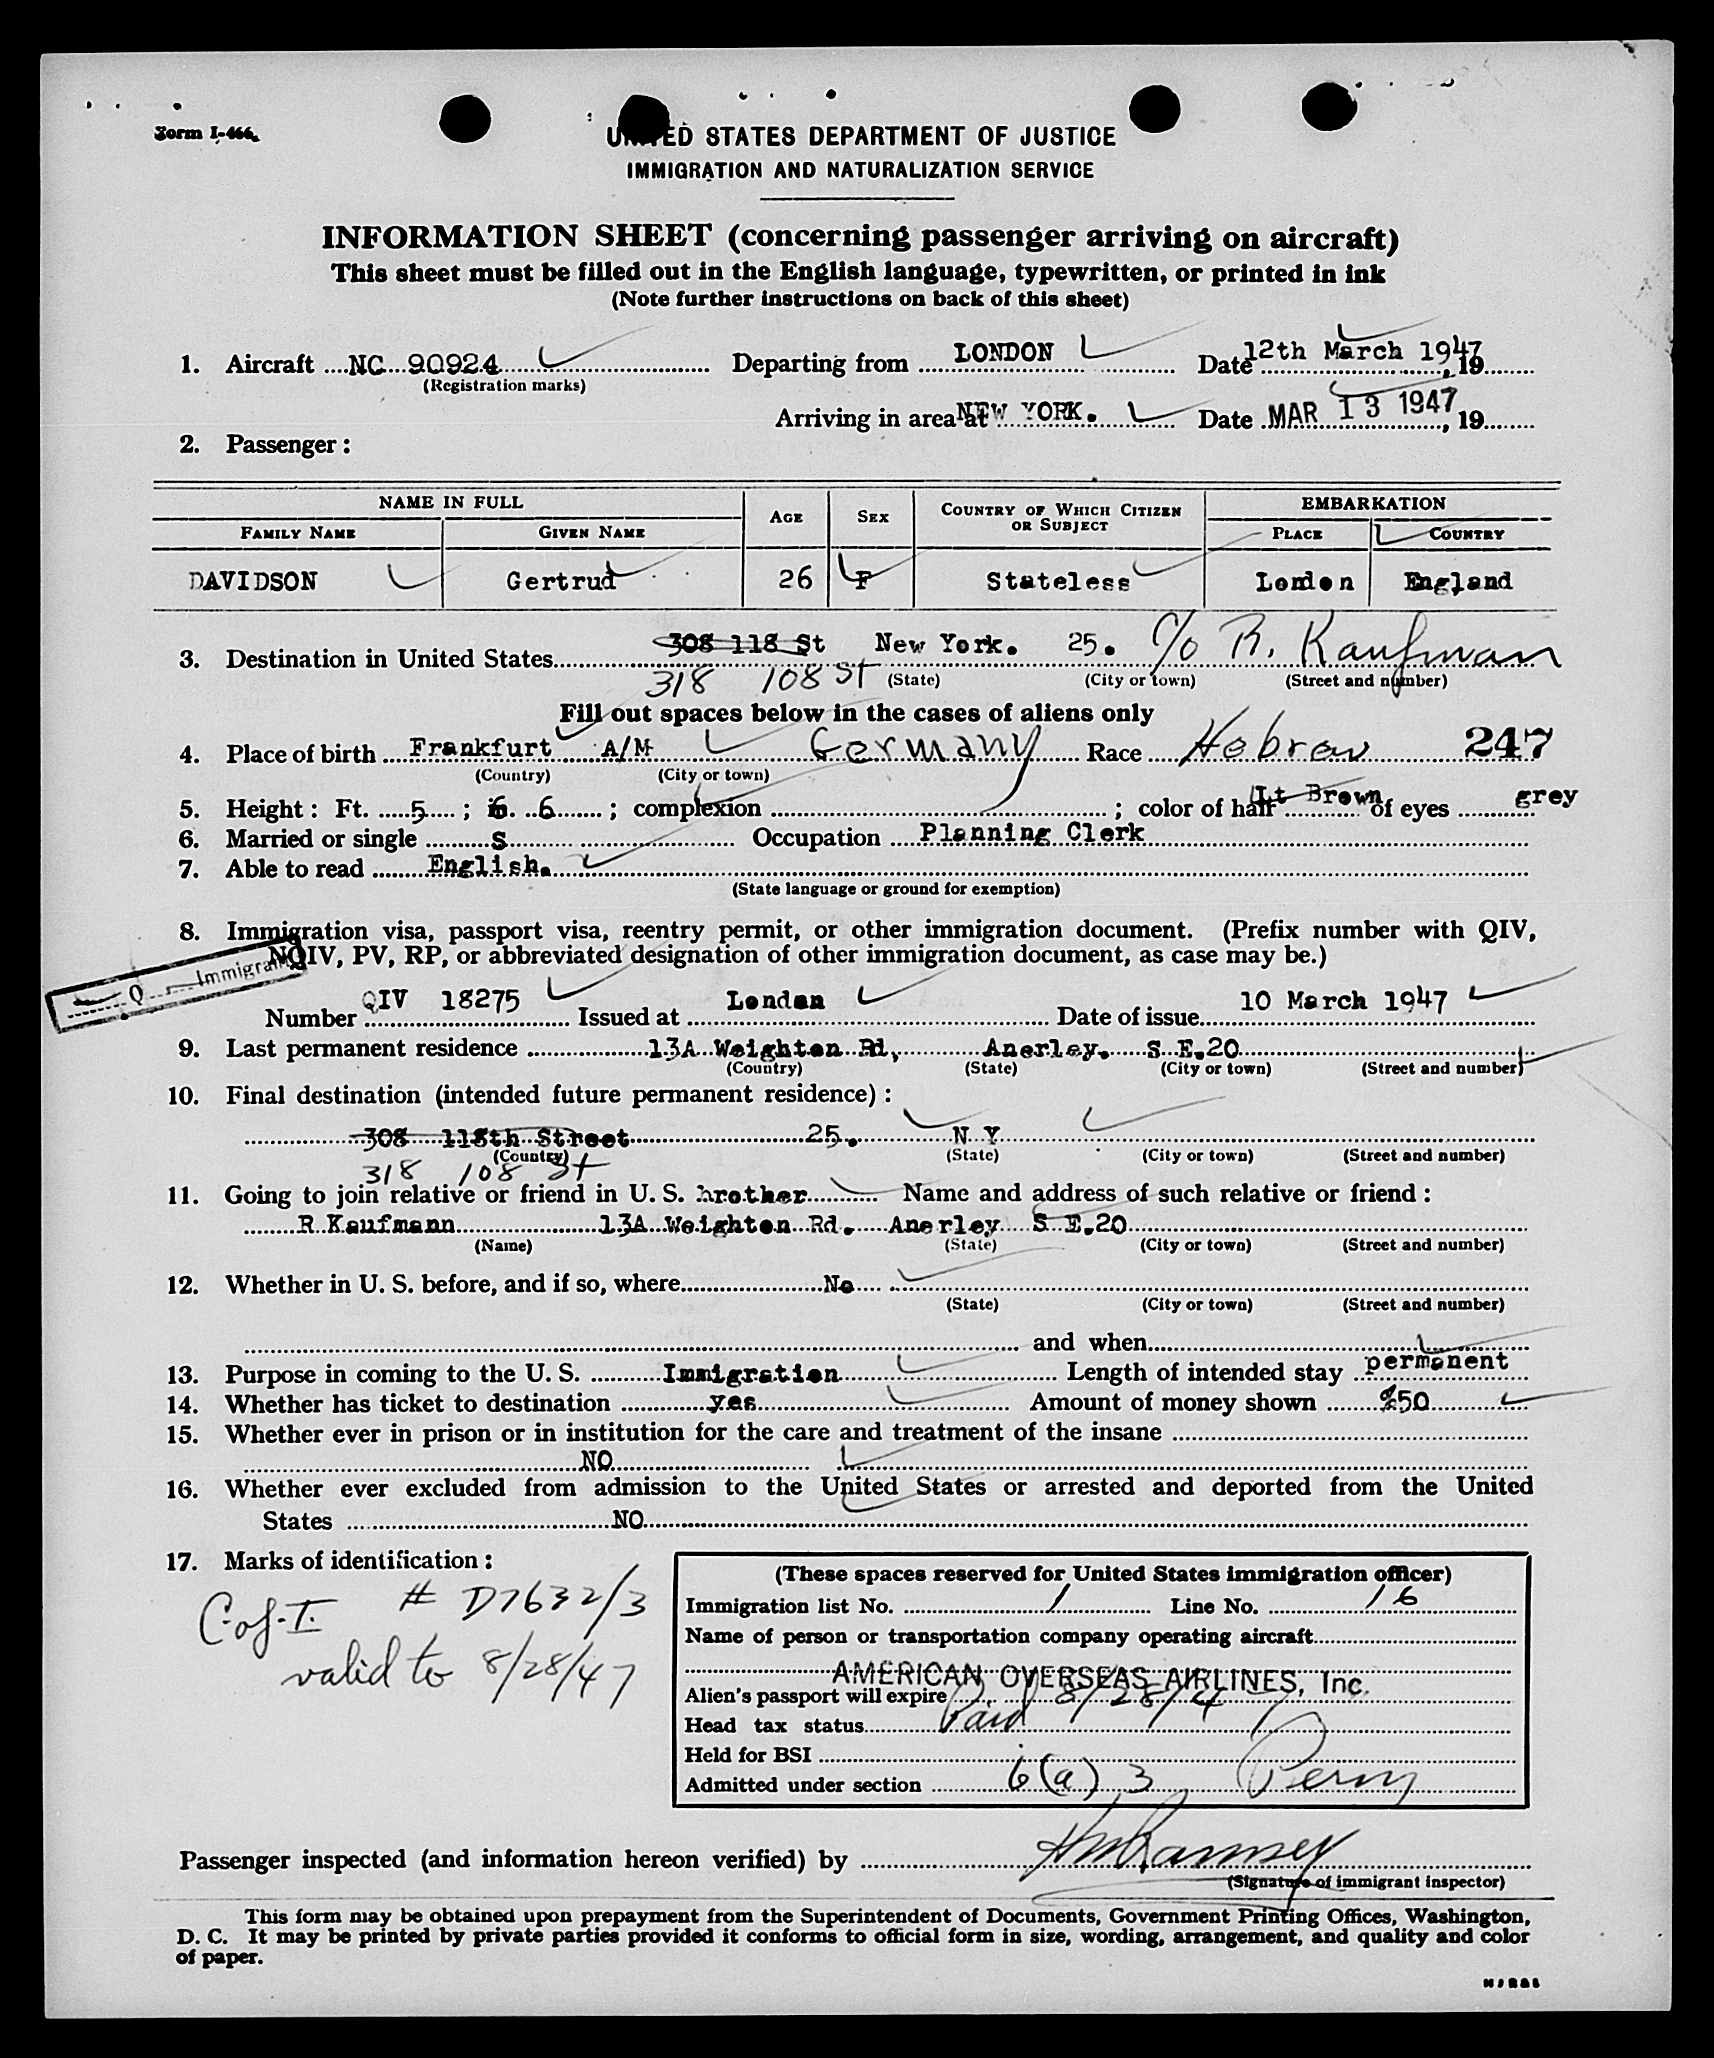 Form I-466
UNITED STATES DEPARTMENT OF JUSTICE
IMMIGRATION AND NATURALIZATION SERVICE
INFORMATION SHEET (concerning passenger arriving on aircraft)
This sheet must be filled out in the English language, typewritten, or printed in ink
(Note further instructions on back of this sheet)
1. Aircraft NC 90924 Departing from LONDON Date 12th March 1947, 19
(Registration marks)
Arriving in area at NEW YORK. Date MAR 13 1947, 19
2. Passenger:
NAME IN FULL AGE SEX COUNTRY OF WHICH CITIZEN OR SUBJECT EMBARKATION
FAMILY NAME GIVEN NAME PLACE COUNTRY
DAVIDSON Gertrud 26 F Stateless London England
3. Destination in United States 308 118 St New York. 25. C/o R. Kaufman
318 108 St (State) (City or town) (Street and number)
Fill out spaces below in the cases of aliens only
4. Place of birth Frankfurt A/M Germany Race Hebrew 247
(Country) (City or town)
5. Height: Ft. 5; in. 6 6; complexion ; color of hair Lt Brown of eyes grey
6. Married or single S Occupation Planning Clerk
7. Able to read English.
(State language or ground for exemption)
8. Immigration visa, passport visa, reentry permit, or other immigration document. (Prefix number with QIV,
NQIV, PV, RP, or abbreviated designation of other immigration document, as case may be.)
Q Immigrant
Number QIV 18275 Issued at London Date of issue 10 March 1947
9. Last permanent residence 13A Weighton Rd, Anerley. S E.20
(Country) (State) (City or town) (Street and number)
10. Final destination (intended future permanent residence):
308 118th Street 25. N Y
(Country) (State) (City or town) (Street and number)
318 108 St
11. Going to join relative or friend in U. S. brother Name and address of such relative or friend:
R Kaufmann 13A Weighton Rd. Anerley S E.20
(Name) (State) (City or town) (Street and number)
12. Whether in U. S. before, and if so, where No
(State) (City or town) (Street and number)
and when
13. Purpose in coming to the U. S. Immigration Length of intended stay permanent
14. Whether has ticket to destination yes Amount of money shown $50
15. Whether ever in prison or in institution for the care and treatment of the insane
NO
16. Whether ever excluded from admission to the United States or arrested and deported from the United
States NO
17. Marks of identification:
C-of-I. # D7632/3
valid to 8/28/47
(These spaces reserved for United States immigration officer)
Immigration list No. 1 Line No. 16
Name of person or transportation company operating aircraft
AMERICAN OVERSEAS AIRLINES, Inc.
Alien's passport will expire 8/28/47
Head tax status Paid
Held for BSI
Admitted under section 6(a) 3 Perry
Passenger inspected (and information hereon verified) by HMRamsey
(Signature of immigrant inspector)
This form may be obtained upon prepayment from the Superintendent of Documents, Government Printing Offices, Washington,
D. C. It may be printed by private parties provided it conforms to official form in size, wording, arrangement, and quality and color
of paper.